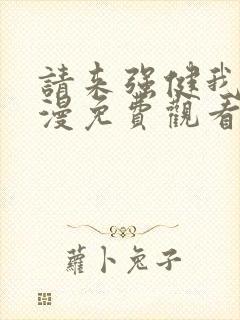 請來强健我
漫免費觀看
蘿卜兔子